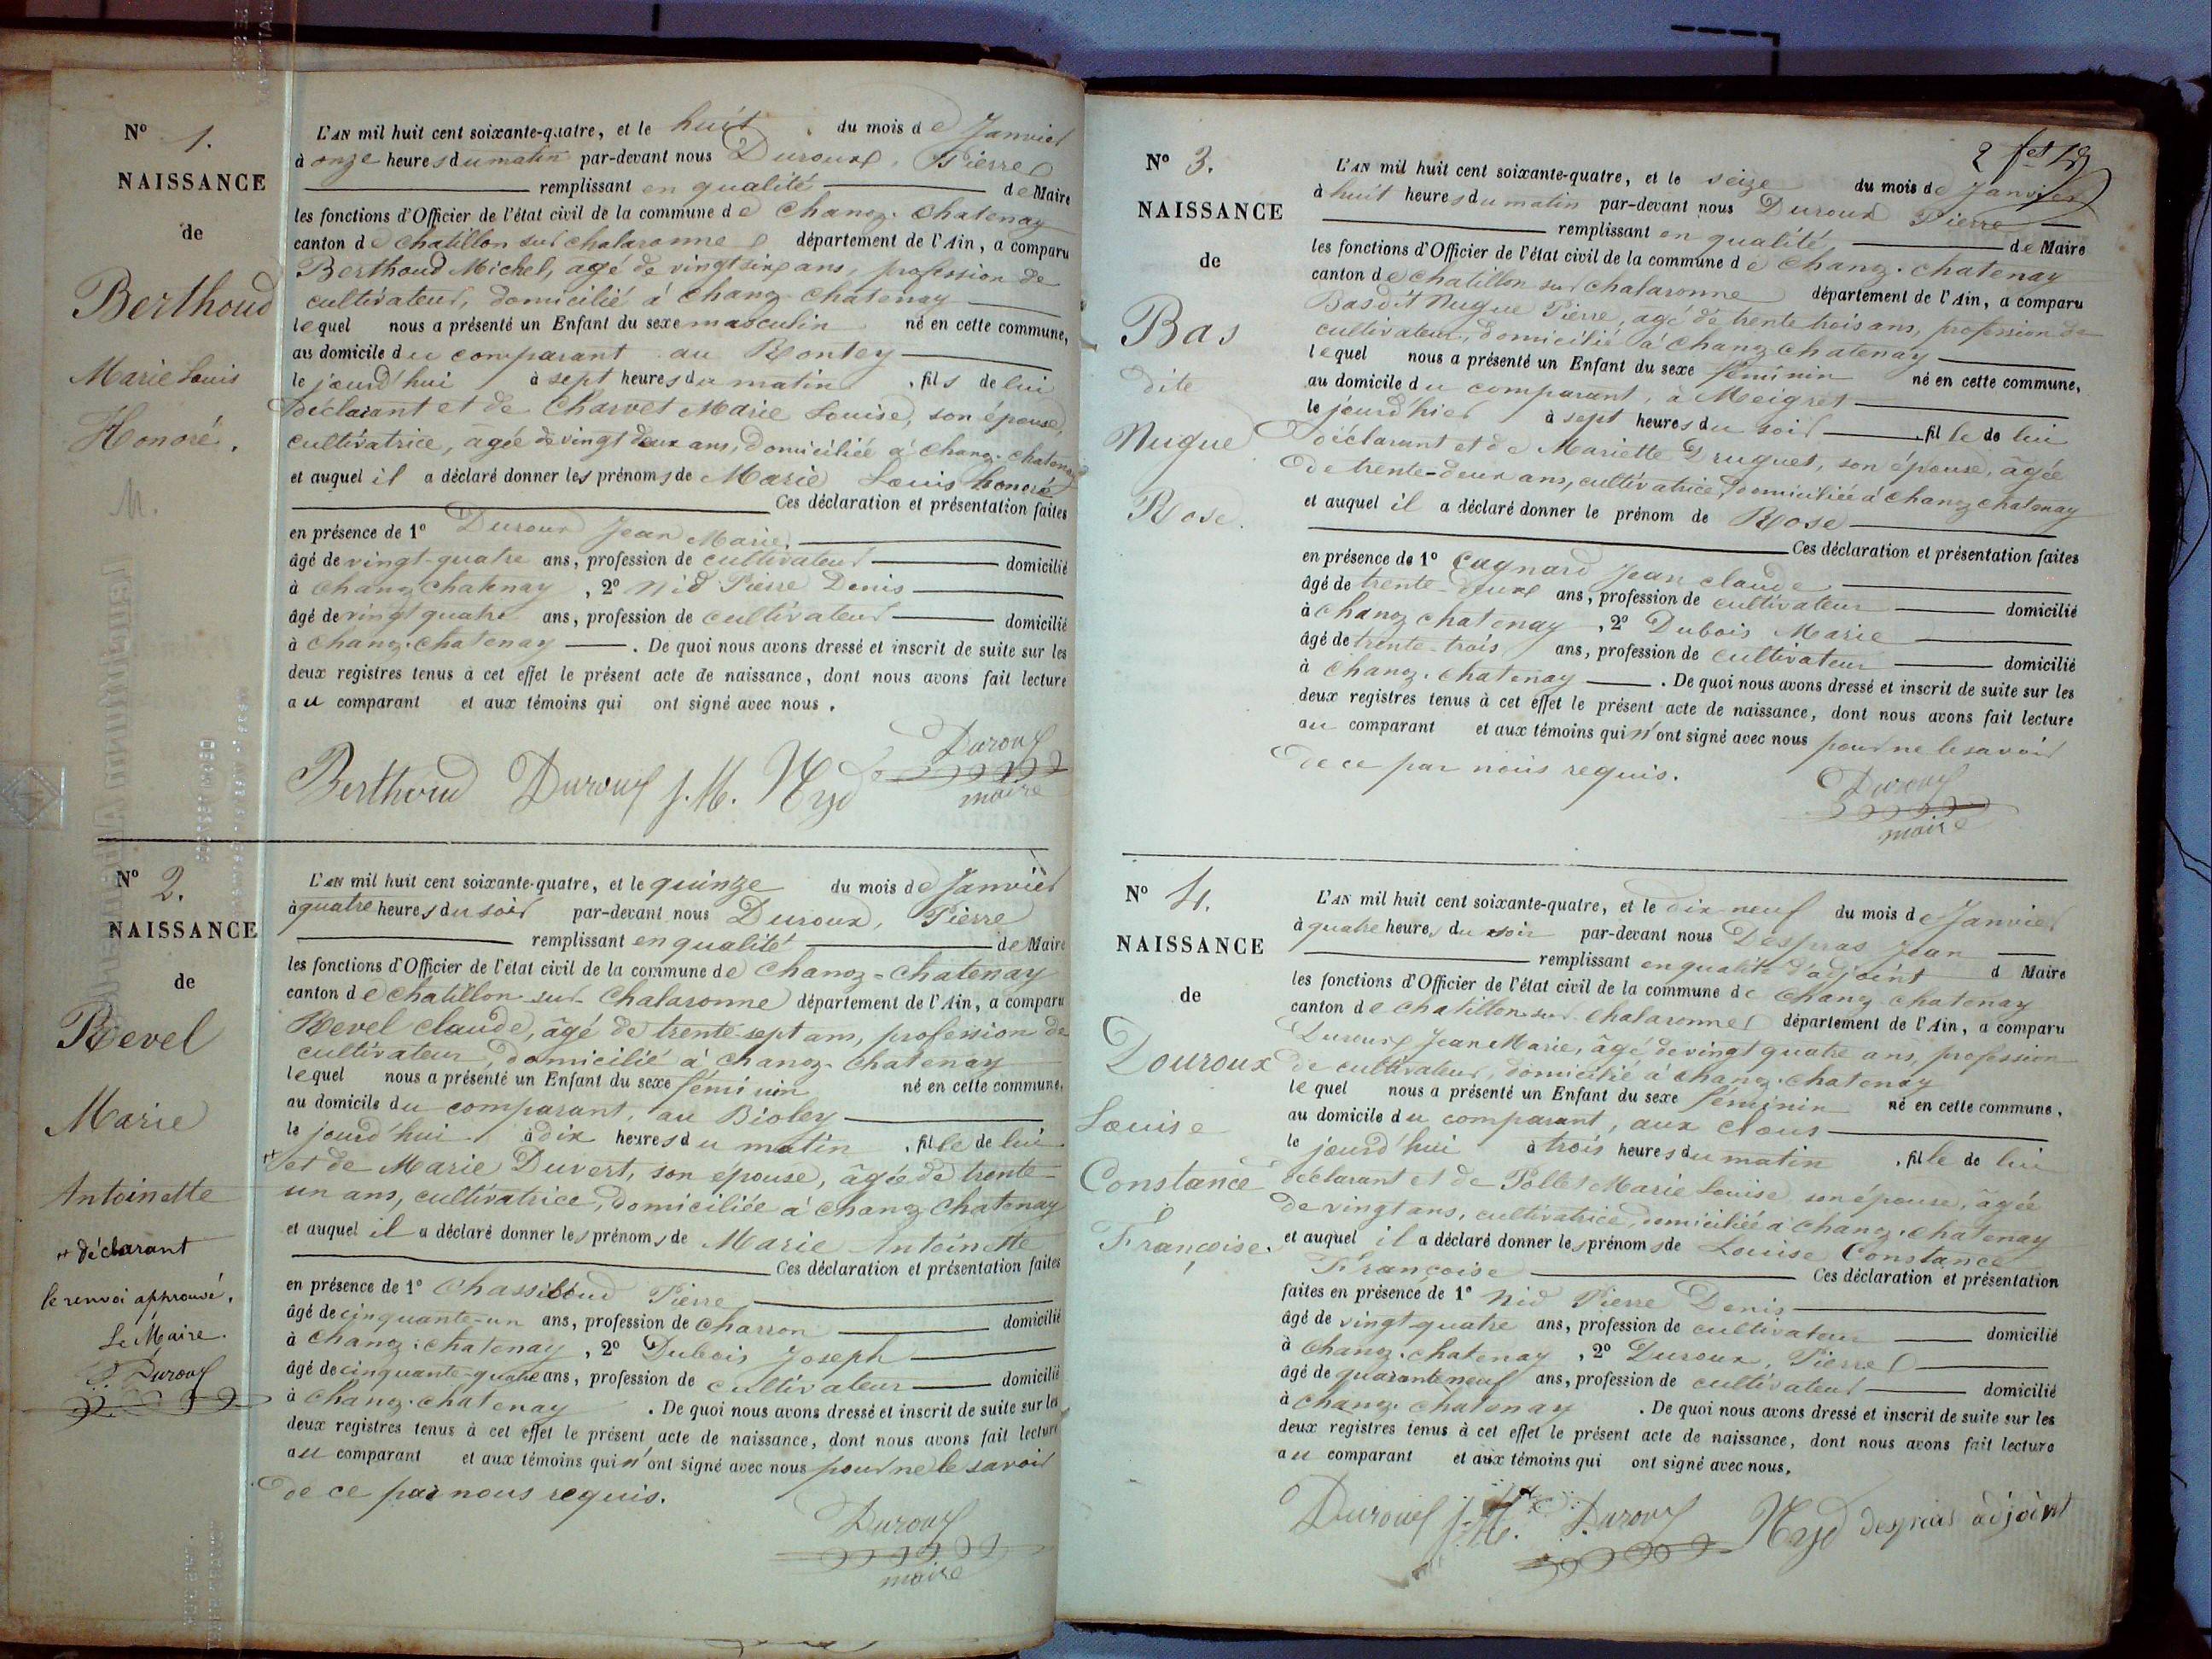 N° 1.
NAISSANCE
de
Berthoud
Marie Louis
Honoré.
L'AN mil huit cent soixante-quatre, et le huit du mois de Janvier
à onze heures du matin par-devant nous Duroux, Pierre
remplissant en qualité de Maire
les fonctions d'Officier de l'état civil de la commune de Chanoz-Chatenay
canton de Chatillon sur Chalaronne département de l'Ain, a comparu
Berthoud Michel, âgé de vingt six ans, profession de
cultivateur, domicilié à Chanoz-Chatenay
lequel nous a présenté un Enfant du sexe masculin né en cette commune,
au domicile du comparant au Montey
le jourd'hui à sept heures du matin, fils de lui
déclarant et de Charvet Marie Louise, son épouse,
cultivatrice, âgée de vingt deux ans, domiciliée à Chanoz-Chatenay
et auquel il a déclaré donner les prénoms de Marie Louis honoré
Ces déclaration et présentation faites
en présence de 1° Duroux Jean Marie,
âgé de vingt-quatre ans, profession de cultivateur domicilié
à Chanoz Chatenay, 2° Nid Pierre Denis
âgé de vingt quatre ans, profession de cultivateur domicilié
à Chanoz-Chatenay. De quoi nous avons dressé et inscrit de suite sur les
deux registres tenus à cet effet le présent acte de naissance, dont nous avons fait lecture
au comparant et aux témoins qui ont signé avec nous.
Berthoud Duroux J. M. Nyd Duroux
maire
N° 2.
NAISSANCE
de
Revel
Marie
Antoinette
déclarant
le renvoi approuvé.
Le Maire.
P. Duroux
L'AN mil huit cent soixante-quatre, et le quinze du mois de Janvier
à quatre heures du soir par-devant nous Duroux, Pierre
remplissant en qualité de Maire
les fonctions d'Officier de l'état civil de la commune de Chanoz-Chatenay
canton de Chatillon-sur-Chalaronne département de l'Ain, a comparu
Revel Claude, âgé de trente-sept ans, profession de
cultivateur, domicilié à Chanoz-Chatenay
lequel nous a présenté un Enfant du sexe féminin né en cette commune,
au domicile du comparant, au Bioley
le jourd'hui à dix heures du matin, fille de lui
et de Marie Duvert, son épouse, âgée de trente
un ans, cultivatrice, domiciliée à Chanoz Chatenay
et auquel il a déclaré donner les prénoms de Marie Antoinette
Ces déclaration et présentation faites
en présence de 1° Chassiboud Pierre
âgé de cinquante-un ans, profession de charron domicilié
à Chanoz-Chatenay, 2° Dubois Joseph
âgé de cinquante-quatre ans, profession de cultivateur domicilié
à Chanoz-Chatenay. De quoi nous avons dressé et inscrit de suite sur les
deux registres tenus à cet effet le présent acte de naissance, dont nous avons fait lecture
au comparant et aux témoins qui n'ont signé avec nous pour ne le savoir
de ce par nous requis.
Duroux
maire
2
N° 3.
NAISSANCE
de
Bas
dite
Nugue
Rose.
L'AN mil huit cent soixante-quatre, et le seize du mois de Janvier
à huit heures du matin par-devant nous Duroux Pierre
remplissant en qualité de Maire
les fonctions d'Officier de l'état civil de la commune de Chanoz-Chatenay
canton de Chatillon sur Chalaronne département de l'Ain, a comparu
Bas dit Nugue Pierre, âgé de trente trois ans, profession de
cultivateur, domicilié à Chanoz Chatenay
lequel nous a présenté un Enfant du sexe féminin né en cette commune,
au domicile du comparant, à Meigret
le jourd'hier à sept heures du soir, fille de lui
déclarant et de Mariette Druguet, son épouse, âgée
de trente-deux ans, cultivatrice, domiciliée à Chanoz Chatenay
et auquel il a déclaré donner le prénom de Rose
Ces déclaration et présentation faites
en présence de 1° Cagnard Jean Claude
âgé de trente-deux ans, profession de cultivateur domicilié
à Chanoz Chatenay, 2° Dubois Marie
âgé de trente-trois ans, profession de cultivateur domicilié
à Chanoz-Chatenay. De quoi nous avons dressé et inscrit de suite sur les
deux registres tenus à cet effet le présent acte de naissance, dont nous avons fait lecture
au comparant et aux témoins qui n'ont signé avec nous pour ne le savoir
de ce par nous requis.
Duroux
maire
N° 4.
NAISSANCE
de
Douroux
Louise
Constance
Françoise.
L'AN mil huit cent soixante-quatre, et le dix neuf du mois de Janvier
à quatre heures du soir par-devant nous Despras Jean
remplissant en qualité d'adjoint d Maire
les fonctions d'Officier de l'état civil de la commune de Chanoz Chatenay
canton de Chatillon-sur-Chalaronne département de l'Ain, a comparu
Duroux Jean Marie, âgé de vingt quatre ans, profession
de cultivateur, domicilié à Chanoz-Chatenay
lequel nous a présenté un Enfant du sexe féminin né en cette commune,
au domicile du comparant, aux Clous
le jourd'hui à trois heures du matin, fille de lui
déclarant et de Pollet Marie Louise son épouse, âgée
de vingt ans, cultivatrice, domiciliée à Chanoz-Chatenay
et auquel il a déclaré donner les prénoms de Louise Constance
Françoise Ces déclaration et présentation
faites en présence de 1° Nid Pierre Denis
âgé de vingt quatre ans, profession de cultivateur domicilié
à Chanoz-Chatenay, 2° Duroux, Pierre
âgé de quarante neuf ans, profession de cultivateur domicilié
à Chanoz-Chatenay. De quoi nous avons dressé et inscrit de suite sur les
deux registres tenus à cet effet le présent acte de naissance, dont nous avons fait lecture
au comparant et aux témoins qui ont signé avec nous.
Duroux J. M. Duroux Nyd despras adjoint